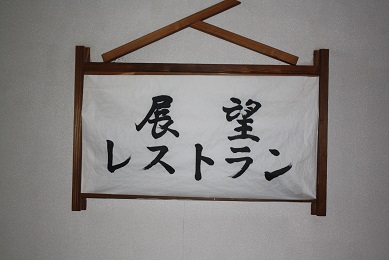 展望
レストラン